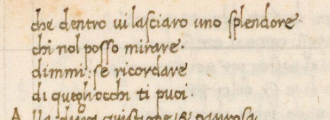 che dentro vi lasciaro uno splendore
chi nol posso mirare·
dimmi: se ricordare
di quegliocchi ti puoi·
A